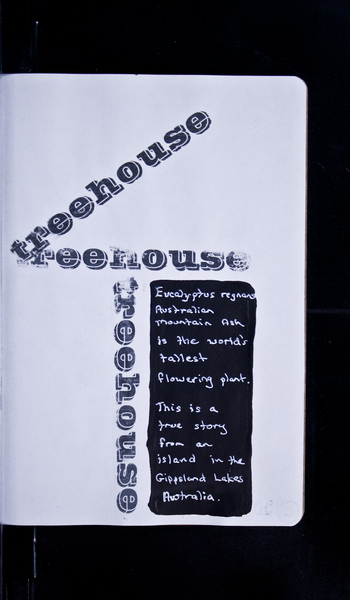 treehouse
treehouse
treehouse
Eucalyptus regnans
Australian
mountain Ash
is the world's
tallest
flowering plant.
This is a
true story
from an
island in the
Gippsland Lakes
Australia.